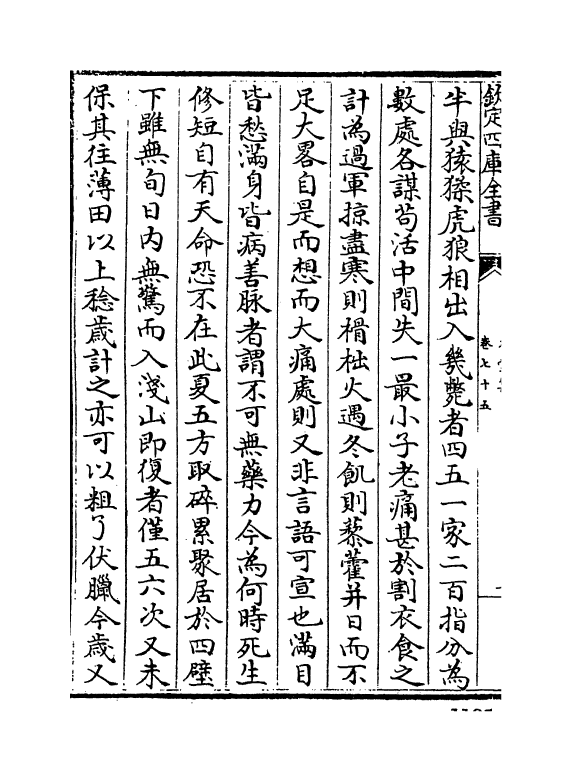 欽定四庫全書
卷七十五
半與猿猱虎狼相出入幾斃者四五一家二百指分為
數處各謀茍活中間失一最小子老痛甚於割衣食之
計為過軍掠盡寒則榾柮火遇冬飢則藜藿并日而不
足大畧自是而想而大痛處則又非言語可宣也滿目
皆愁滿身皆病善脉者謂不可無藥力今為何時死生
修短自有天命恐不在此夏五方取碎累聚居於四壁
下雖無旬日内無驚而入淺山即復者僅五六次又未
保其往薄田以上稔歲計之亦可以粗了伏臘今歲又